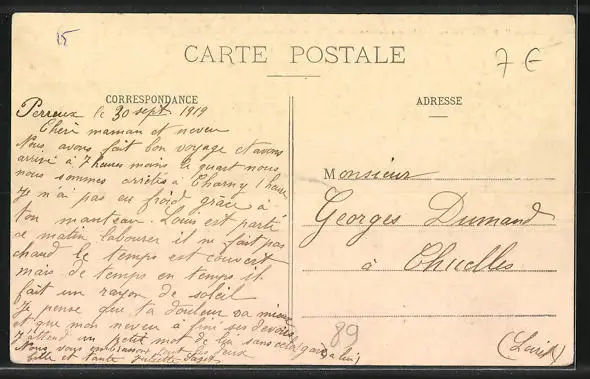 15
CARTE POSTALE
7 €
CORRESPONDANCE
ADRESSE
Perreux le 30 sept 1919
Chère maman et neveu
Nous avons fait bon voyage et avons
arrivé à 7 heures moins le quart nous
nous sommes arrêtés à Charny 1 heure
Je n'ai pas eu froid grâce à
ton manteau. Louis est parti
ce matin labourer il ne fait pas
chaud le temps est couvert
mais de temps en temps il
fait un rayon de soleil
Je pense que ta douleur va mieux
et que mon neveu à fini ses devoirs
J'attend un petit mot de lui sans cela gare à lui
Nous vous embrassons tout les deux
fille et tante Juliette
Monsieur
Georges Dumand
à Chuelles
(Loiret)
89